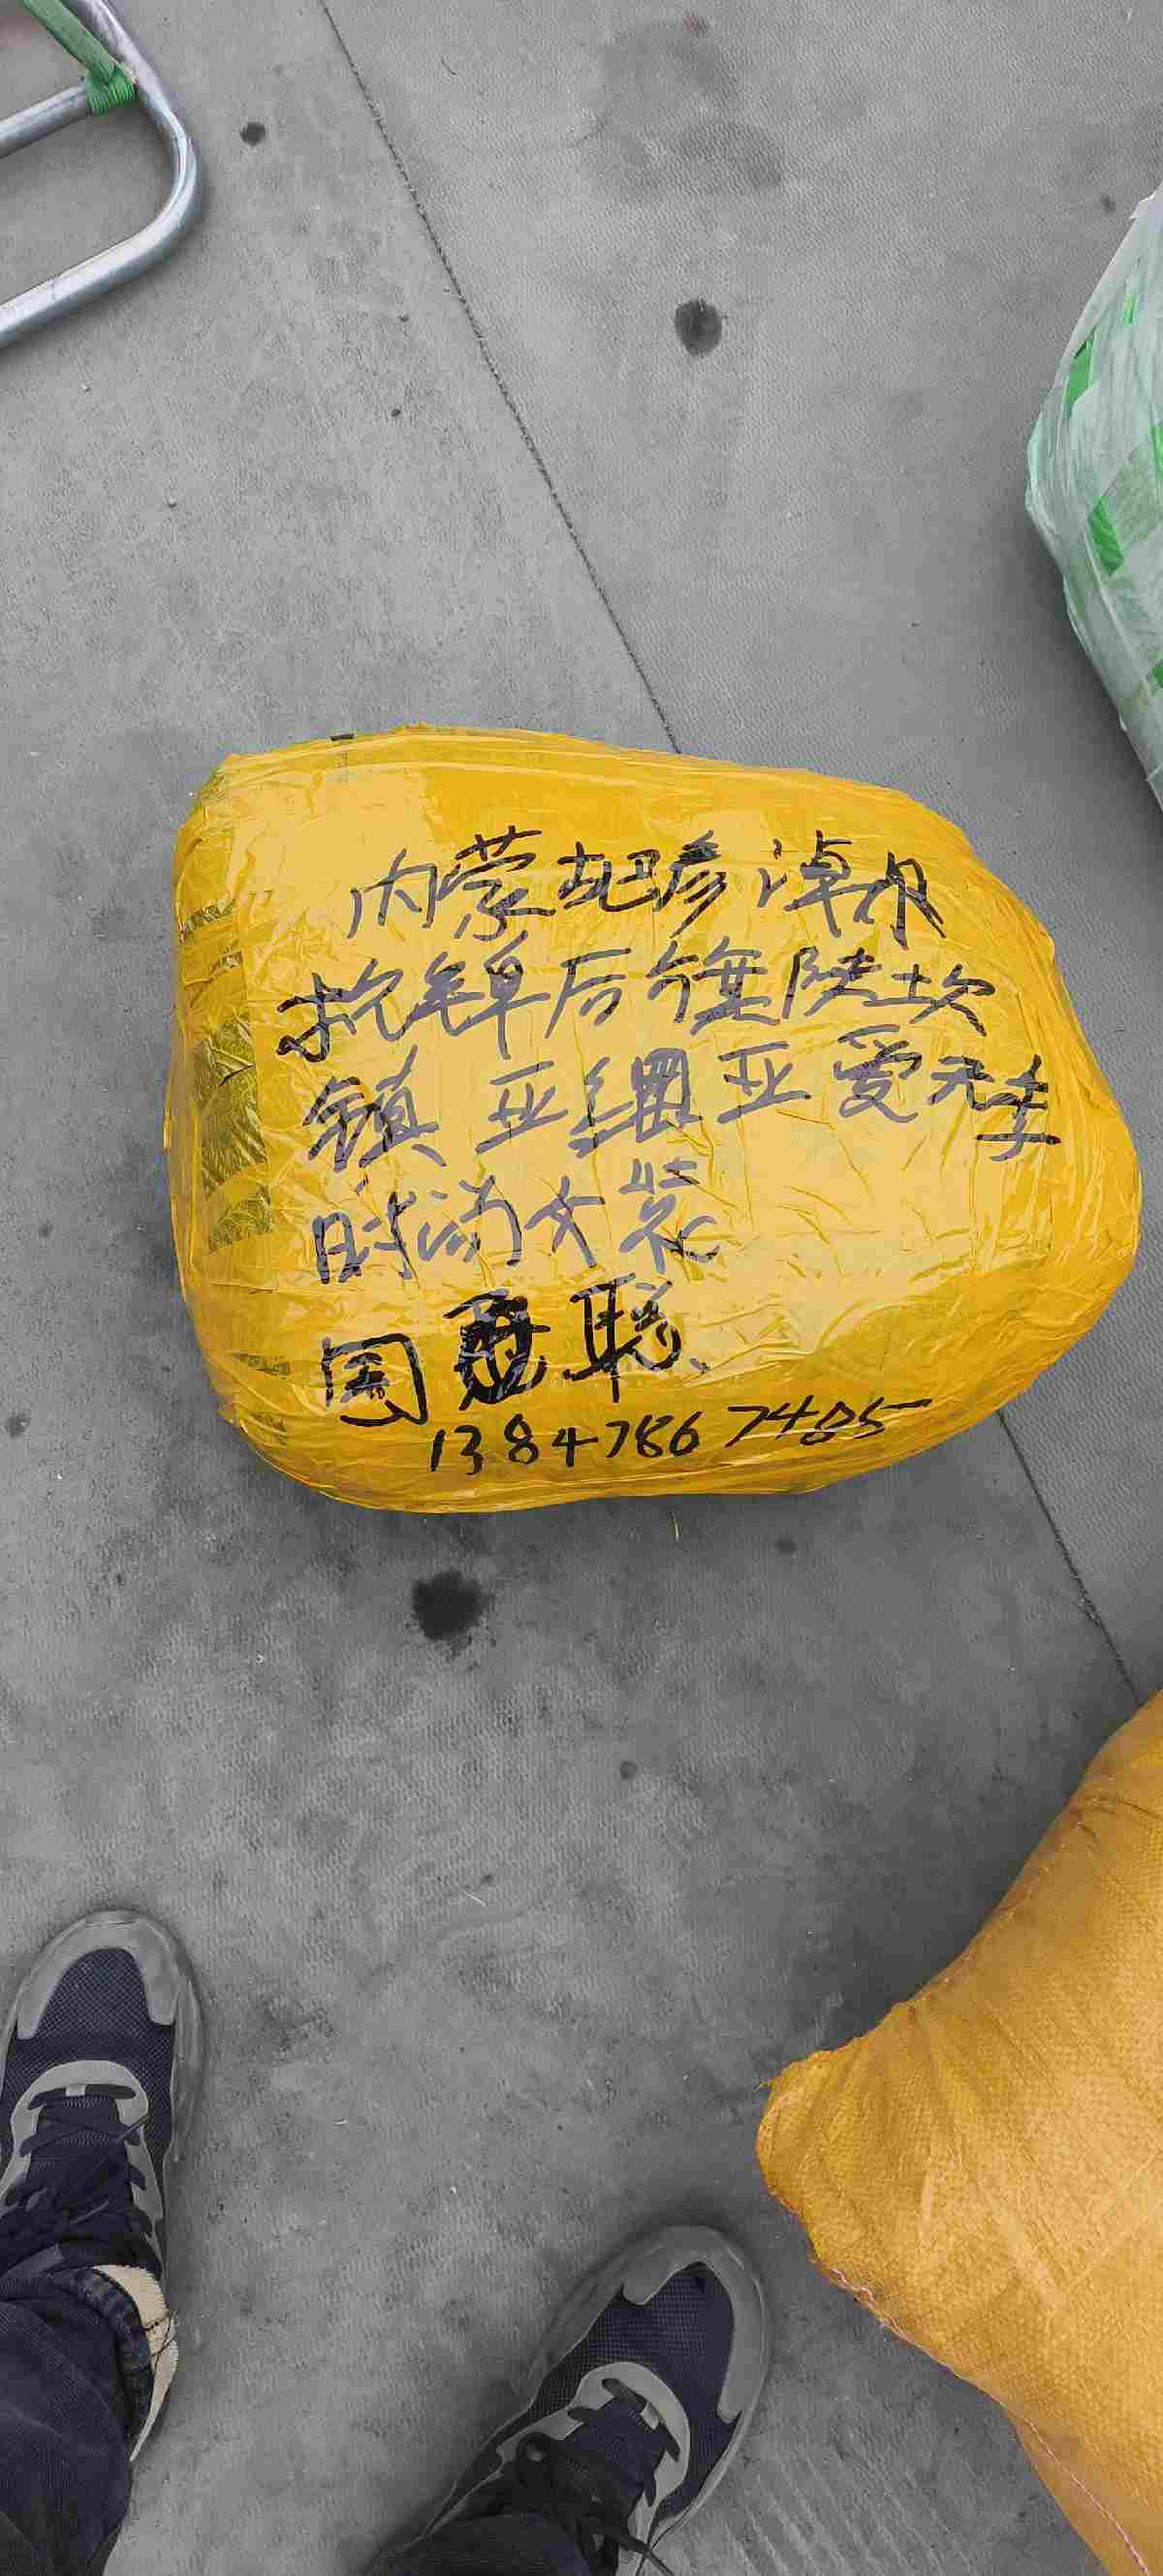 内蒙巴彦淖尔
杭锦后旗陕坝
镇 亚细亚爱无季
时尚女装
周 聪
13847867405